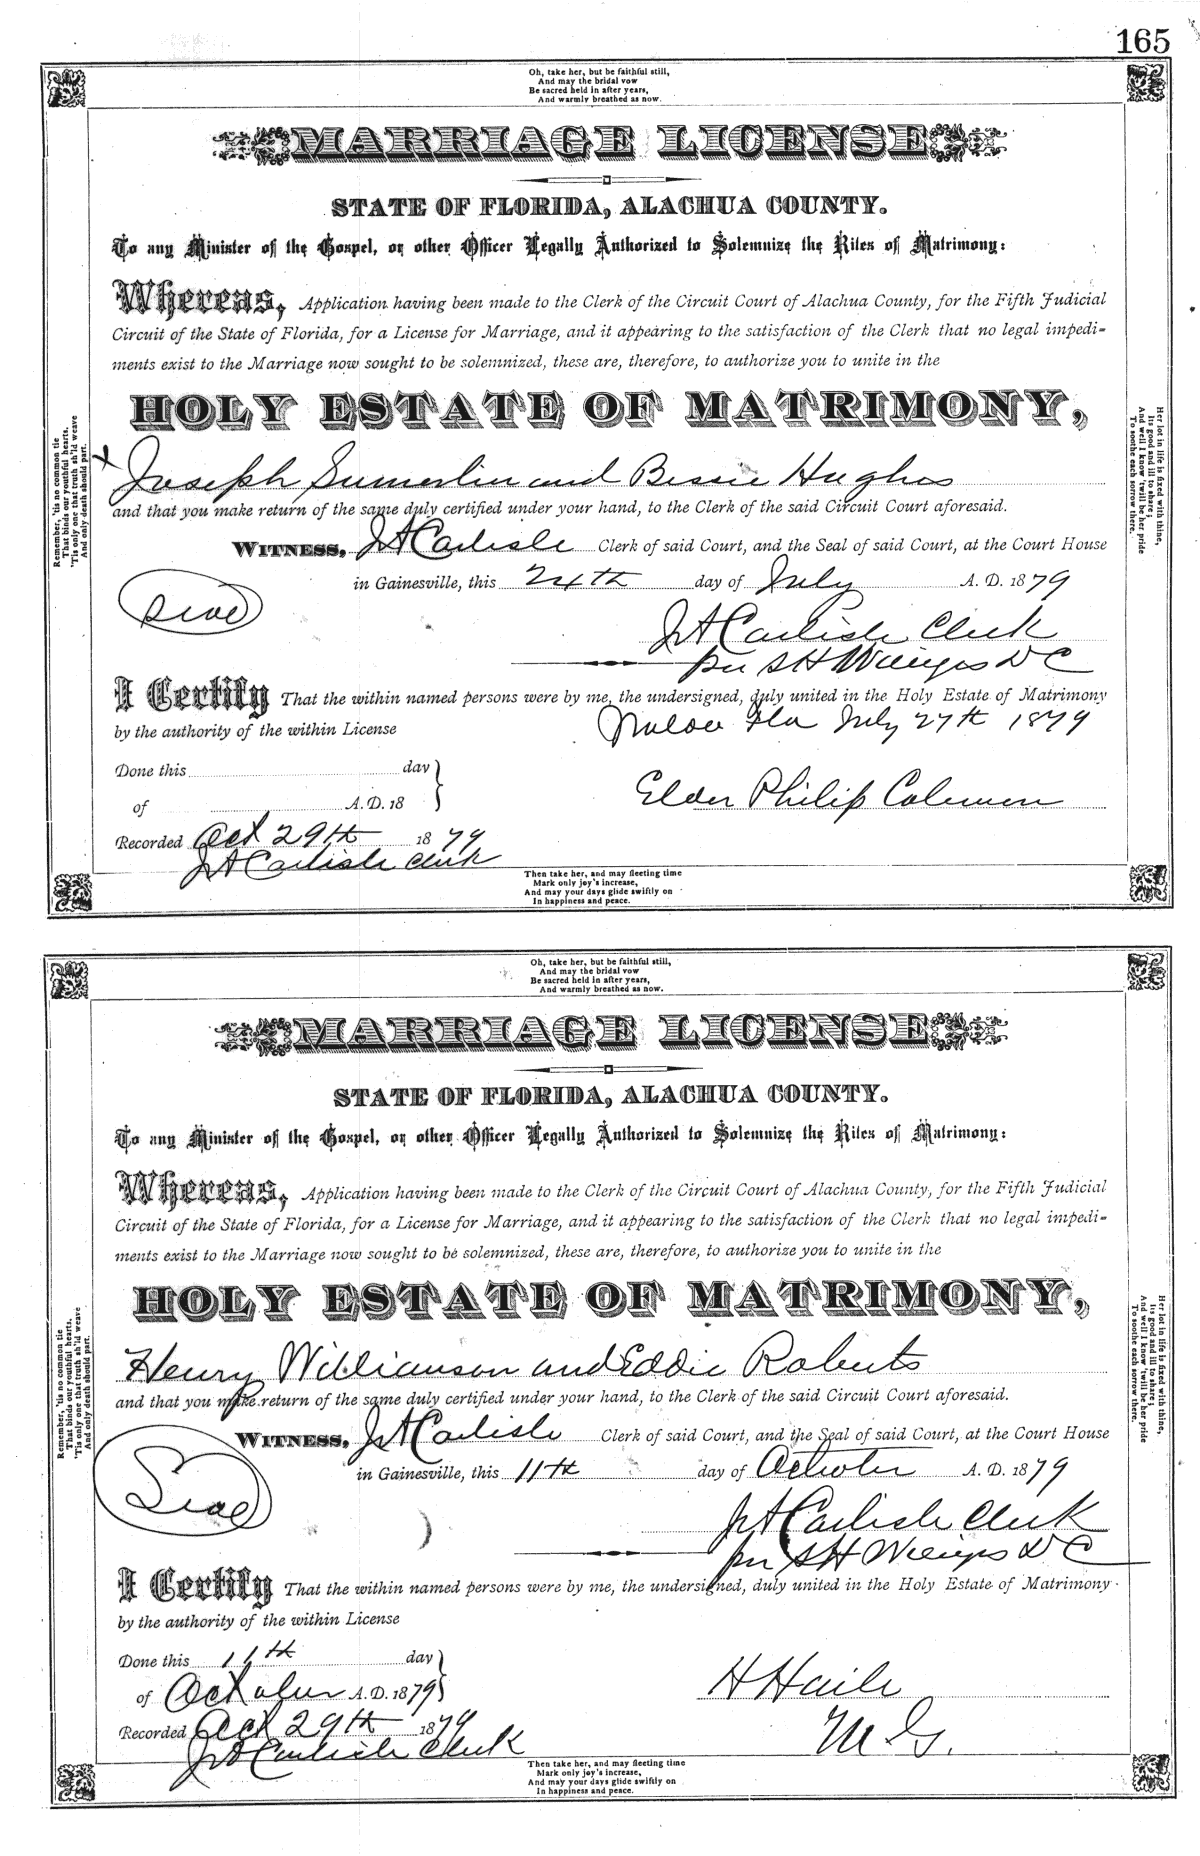 165
Oh, take her, but be faithful still,
And may the bridal vow
Be sacred held in after years,
And warmly breathed as now.
MARRIAGE LICENSE
STATE OF FLORIDA, ALACHUA COUNTY.
To any Minister of the Gospel, or other Officer Legally Authorized to Solemnize the Rites of Matrimony:
Whereas, Application having been made to the Clerk of the Circuit Court of Alachua County, for the Fifth Judicial
Circuit of the State of Florida, for a License for Marriage, and it appearing to the satisfaction of the Clerk that no legal impedi-
ments exist to the Marriage now sought to be solemnized, these are, therefore, to authorize you to unite in the
HOLY ESTATE OF MATRIMONY,
Remember, 'tis no common tie
That binds our youthful hearts,
'Tis only one that truth sh'ld weave
And only death should part.
Her lot in life is fixed with thine,
Its good and ill to share;
And well I know 'twill be her pride
To soothe each sorrow there.
x Joseph Sumerlin and Bessie Hughes
and that you make return of the same duly certified under your hand, to the Clerk of the said Circuit Court aforesaid.
WITNESS, J A Carlisle Clerk of said Court, and the Seal of said Court, at the Court House
in Gainesville, this 24th day of July A. D. 1879
Seal
J A Carlisle Clerk
per S H Wienges D C
I Certify That the within named persons were by me, the undersigned, duly united in the Holy Estate of Matrimony
by the authority of the within License
Fla July 27th 1879
Done this day
of A. D. 18
Elder Philip Coleman
Recorded Oct 29th 1879
J A Carlisle Clerk
Then take her, and may fleeting time
Mark only joy's increase,
And may your days glide swiftly on
In happiness and peace.
Oh, take her, but be faithful still,
And may the bridal vow
Be sacred held in after years,
And warmly breathed as now.
MARRIAGE LICENSE
STATE OF FLORIDA, ALACHUA COUNTY.
To any Minister of the Gospel, or other Officer Legally Authorized to Solemnize the Rites of Matrimony:
Whereas, Application having been made to the Clerk of the Circuit Court of Alachua County, for the Fifth Judicial
Circuit of the State of Florida, for a License for Marriage, and it appearing to the satisfaction of the Clerk that no legal impedi-
ments exist to the Marriage now sought to be solemnized, these are, therefore, to authorize you to unite in the
HOLY ESTATE OF MATRIMONY,
Remember, 'tis no common tie
That binds our youthful hearts,
'Tis only one that truth sh'ld weave
And only death should part.
Her lot in life is fixed with thine,
Its good and ill to share;
And well I know 'twill be her pride
To soothe each sorrow there.
Henry Williamson and Eddie Roberts
and that you make return of the same duly certified under your hand, to the Clerk of the said Circuit Court aforesaid.
WITNESS, J A Carlisle Clerk of said Court, and the Seal of said Court, at the Court House
in Gainesville, this 11th day of October A. D. 1879
Seal
J A Carlisle Clerk
per S H Wienges D C
I Certify That the within named persons were by me, the undersigned, duly united in the Holy Estate of Matrimony
by the authority of the within License
Done this 11th day
of October A. D. 1879
H Haile
M G.
Recorded Oct 29th 1879
J A Carlisle Clerk
Then take her, and may fleeting time
Mark only joy's increase,
And may your days glide swiftly on
In happiness and peace.